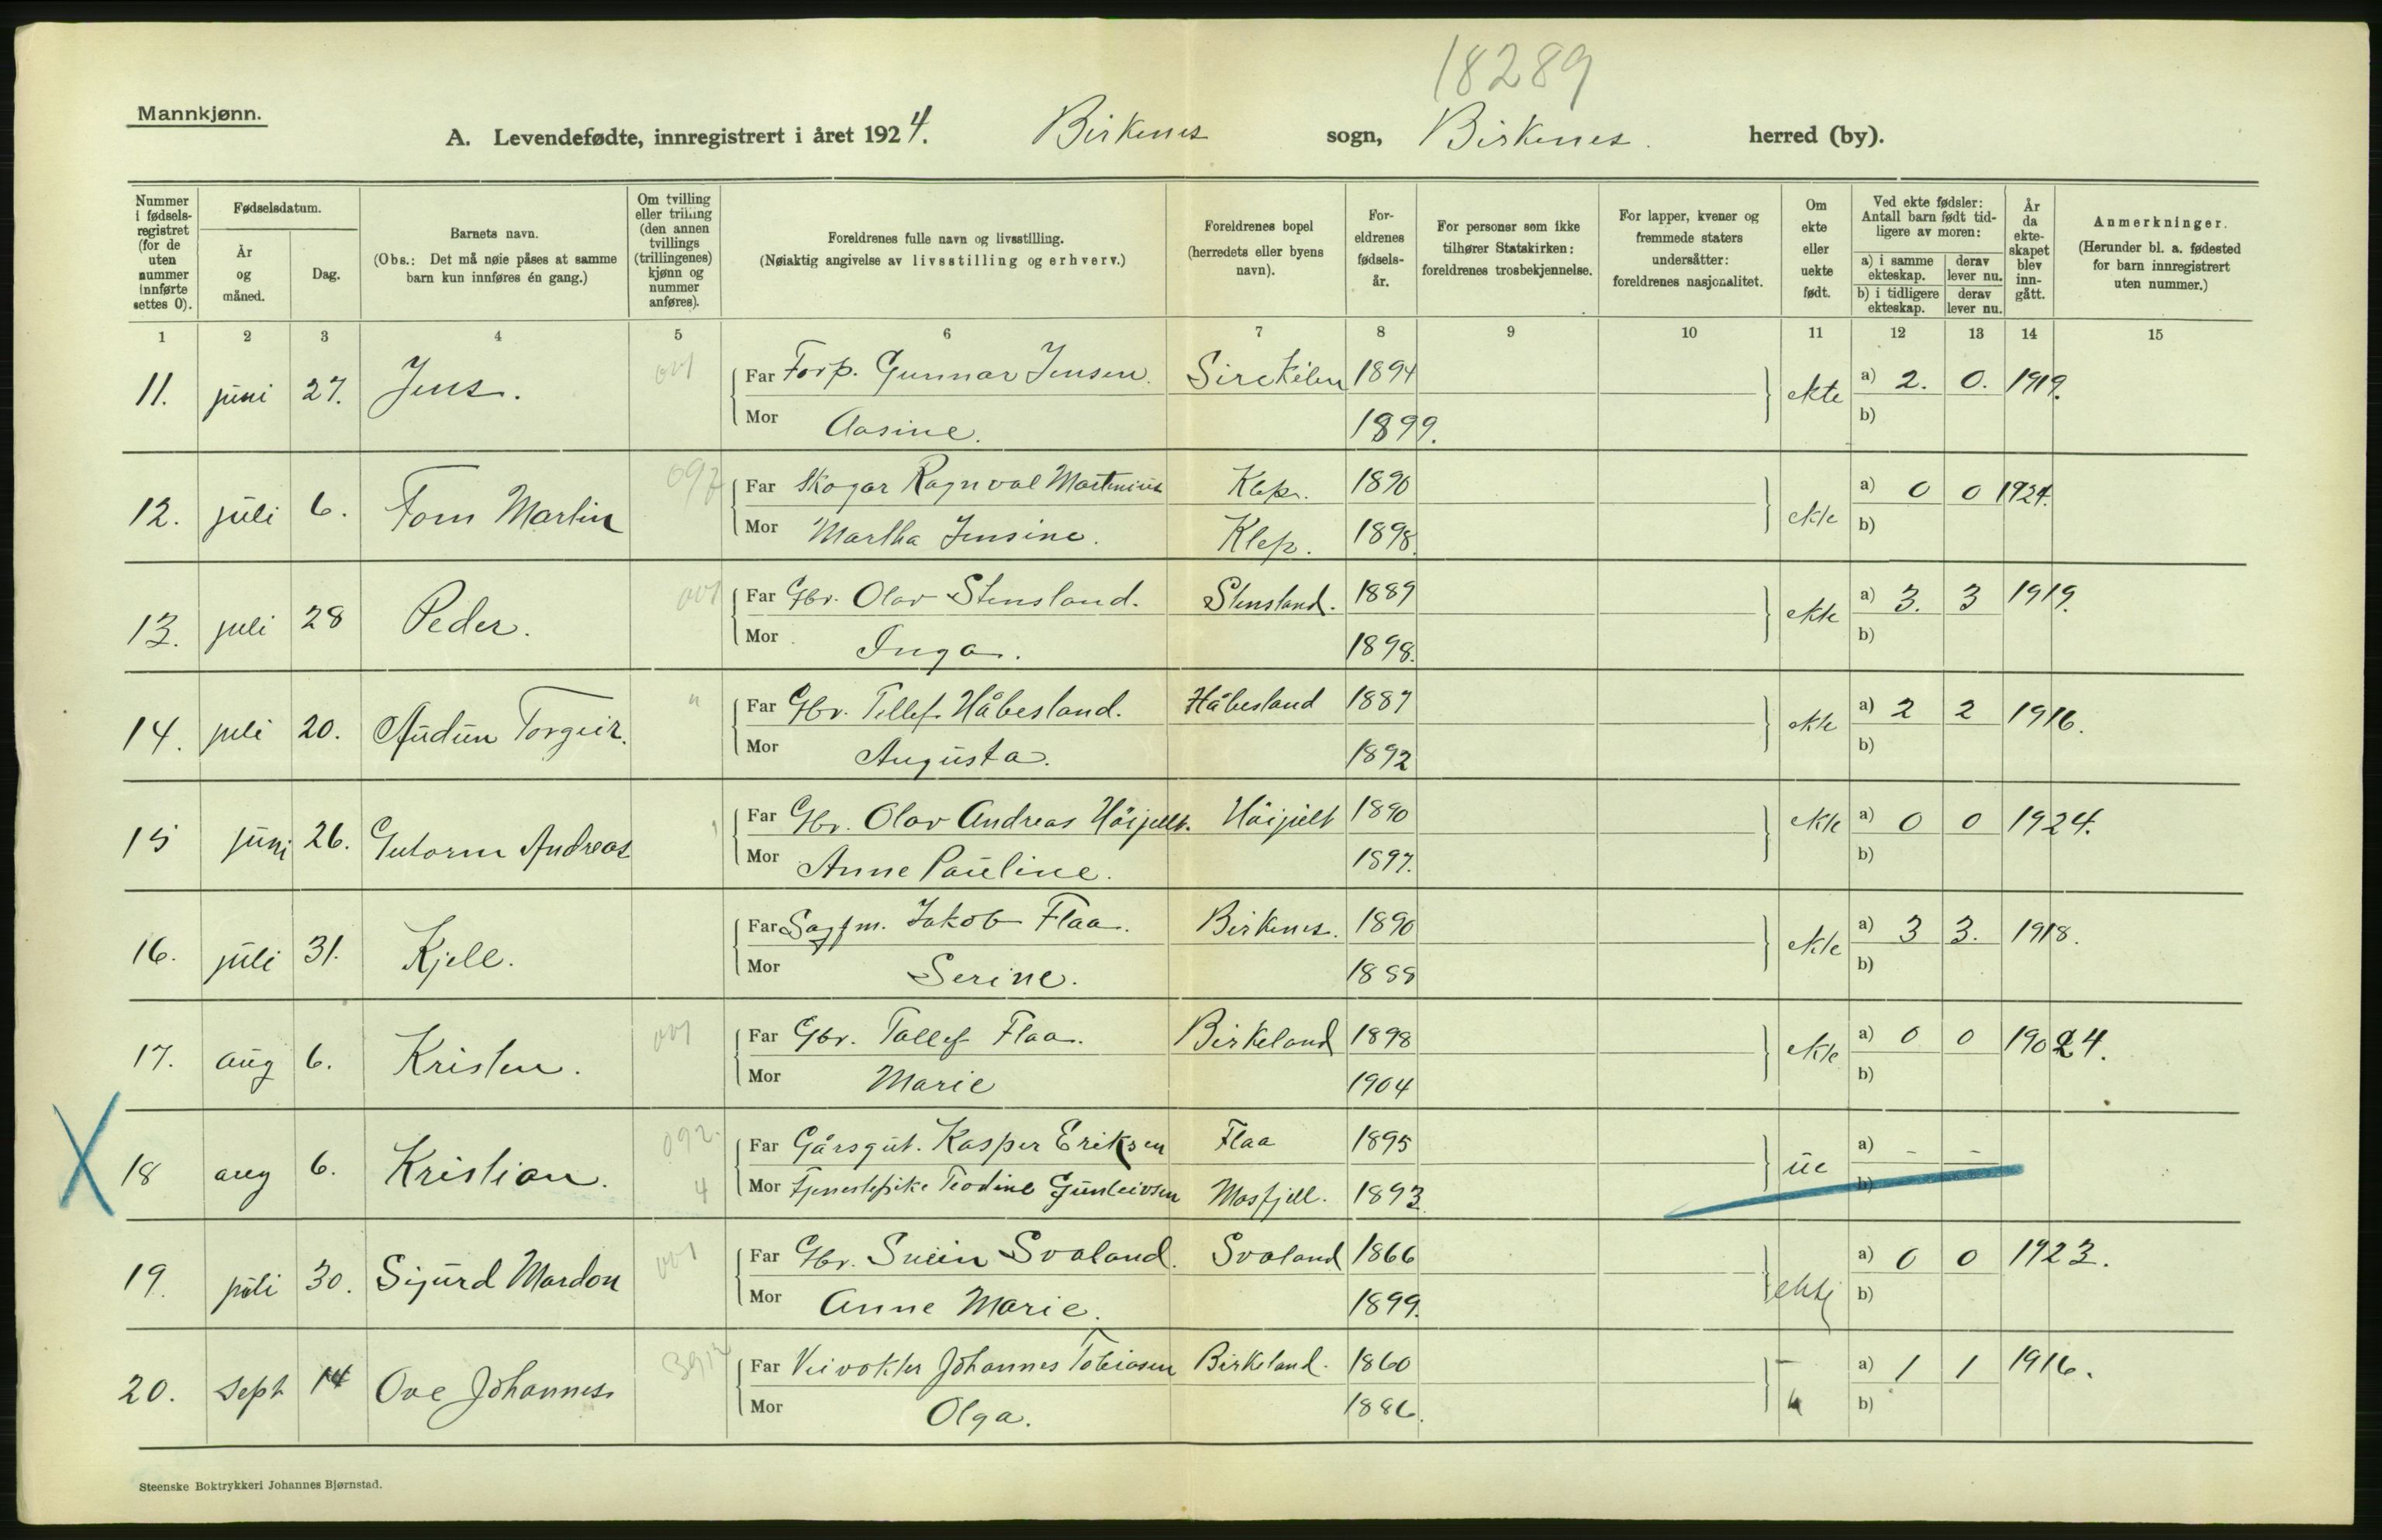 18289
Mannkjønn.
A. Levendefødte, innregistrert i året 1924. Birkenes sogn, Birkenes. herred (by).
Nummer i fødselsregistret (for de uten nummer innførte settes 0).
Fødselsdatum.
År og måned.
Dag.
Barnets navn.
(Obs.: Det må nøie påses at samme barn kun innføres én gang.)
Om tvilling eller trilling (den annen tvillings (trillingenes) kjønn og nummer anføres).
Foreldrenes fulle navn og livsstilling.
(Nøiaktig angivelse av livsstilling og erhverv.)
Foreldrenes bopel
(herredets eller byens navn).
Foreldrenes fødselsår.
For personer som ikke tilhører Statskirken: foreldrenes trosbekjennelse.
For lapper, kvener og fremmede staters undersåtter: foreldrenes nasjonalitet.
Om ekte eller uekte født.
Ved ekte fødsler: Antall barn født tidligere av moren:
a) i samme ekteskap. derav lever nu.
b) i tidligere ekteskap. derav lever nu.
År da ekteskapet blev inngått.
Anmerkninger.
(Herunder bl. a. fødested for barn innregistrert uten nummer.)
1 2 3 4 5 6 7 8 9 10 11 12 13 14 15
11. juni 27. Jens. 001 Far Forp. Gunnar Jensen. 1894 ekte a) 2. 0. 1919.
Mor Aasine. 1899. b)
12. juli 6. Tom Martin 092 Far Skogar Ragnval Martinius Klep. 1890 ekte a) 0 0 1924.
Mor Martha Jensine. Klep. 1898. b)
13. juli 28 Peder. 001 Far Gbr. Olav Stensland. Stensland. 1889 ekte a) 3. 3 1919.
Mor Inga. 1898. b)
14. juli 20. Audun Torgeir. " Far Gbr. Tellef Håbesland. Håbesland 1887 ekte a) 2 2 1916.
Mor Augusta. 1892 b)
15 juni 26. Gutorm Andreas Far Gbr. Olav Andreas 1890 ekte a) 0 0 1924.
Mor Anne Pauline. 1897. b)
16. juli 31. Kjell. Far Sagfm. Jakob Flaa. Birkenes. 1890 ekte a) 3 3. 1918.
Mor Serine. 1888 b)
17. aug 6. Kristen. 001 Far Gbr. Tallef Flaa. Birkeland 1898 ekte a) 0 0 1924.
Mor Marie 1904 b)
18 aug 6. Kristian. 092. Far Gårsgut. Kasper Eriksen Flaa 1895 ue a) - -
4 Mor Tjenestepike Teodine Gunleivsen Mosfjell. 1893. b)
19. juli 30. Sigurd Mardon 001 Far Gbr. Svein Svaland. Svaland 1866 ekte a) 0 0 1923.
Mor Anne Marie. 1899. b)
20. sept 14 Ove Johannes Far Veivokter Johannes Tobiasen Birkeland. 1860 a) 1 1 1916.
Mor Olga. 1886. b)
Steenske Boktrykkeri Johannes Bjørnstad.